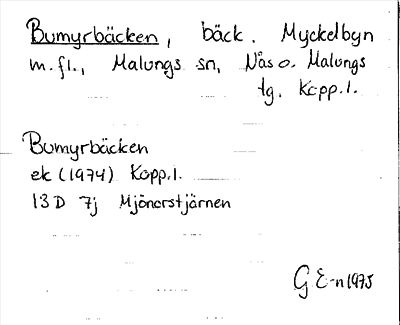 Bumyrbäcken, bäck. Myckelbyn
m.fl., Malungs sn, Nås o. Malungs
tg, Kopp.l.
Bumyrbäcken
ek (1974) Kopp.l.
13D 7j Mjönerstjärnen
G E-n 1975